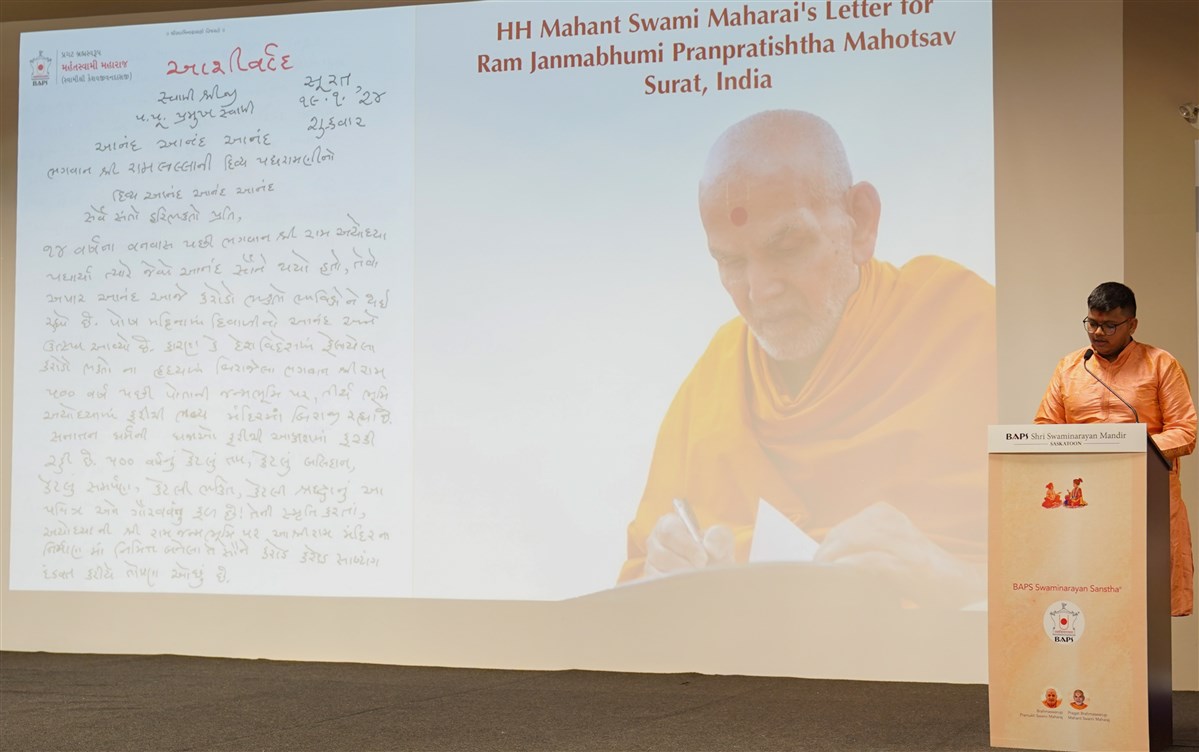 HH Mahant Swami Maharaj's Letter for
Ram Janmabhumi Pranpratishtha Mahotsav
Surat, India
પ્રગટ બ્રહ્મસ્વરૂપ
મહંતસ્વામી મહારાજ
(સ્વામીશ્રી કેશવજીવનદાસજી)
BAPS
આશીર્વાદ
સ્વામી શ્રીજી
પ.પૂ. પ્રમુખ સ્વામી
સૂરત,
૧૯.૧.૨૪
શુક્રવાર
આનંદ આનંદ આનંદ
ભગવાન શ્રી રામલલ્લાની દિવ્ય પધરામણીનો
દિવ્ય આનંદ આનંદ આનંદ
સર્વે સંતો હરિભક્તો પ્રતિ,
૧૪ વર્ષના વનવાસ પછી ભગવાન શ્રી રામ અયોધ્યા
પધાર્યા ત્યારે જેવો આનંદ સૌને થયો હતો, તેવો
અપાર આનંદ આજે કરોડો ભક્તો ભાવિકોને થઈ
રહ્યો છે. પોષ મહિનામાં દિવાળીનો આનંદ અને
ઉત્સવ આવ્યો છે. કારણ કે દેશવિદેશમાં ફેલાયેલા
કરોડો ભક્તો ના હૃદયમાં બિરાજેલા ભગવાન શ્રીરામ
૫૦૦ વર્ષ પછી પોતાની જન્મભૂમિ પર, તીર્થ ભૂમિ
અયોધ્યામાં ફરીથી ભવ્ય મંદિરમાં બિરાજી રહ્યા છે.
સનાતન ધર્મની ધજાઓ ફરીથી આકાશમાં ફરકી
રહી છે. ૫૦૦ વર્ષનું કેટલું તપ, કેટલું બલિદાન,
કેટલું સમર્પણ, કેટલી ભક્તિ, કેટલી શ્રદ્ધાનું આ
પવિત્ર અને ગૌરવવંતું ફળ છે! તેની સ્મૃતિ કરતાં,
અયોધ્યાની શ્રી રામજન્મભૂમિ પર આ શ્રીરામ મંદિરના
નિર્માણ માં નિમિત્ત બનેલા તે સૌને કરોડ કરોડ સાષ્ટાંગ
દંડવત કરીએ તોપણ ઓછું છે.
BAPS Shri Swaminarayan Mandir
SASKATOON
BAPS Swaminarayan Sanstha
BAPS
Brahmaswarup
Pramukh Swami Maharaj
Pragat Brahmaswarup
Mahant Swami Maharaj